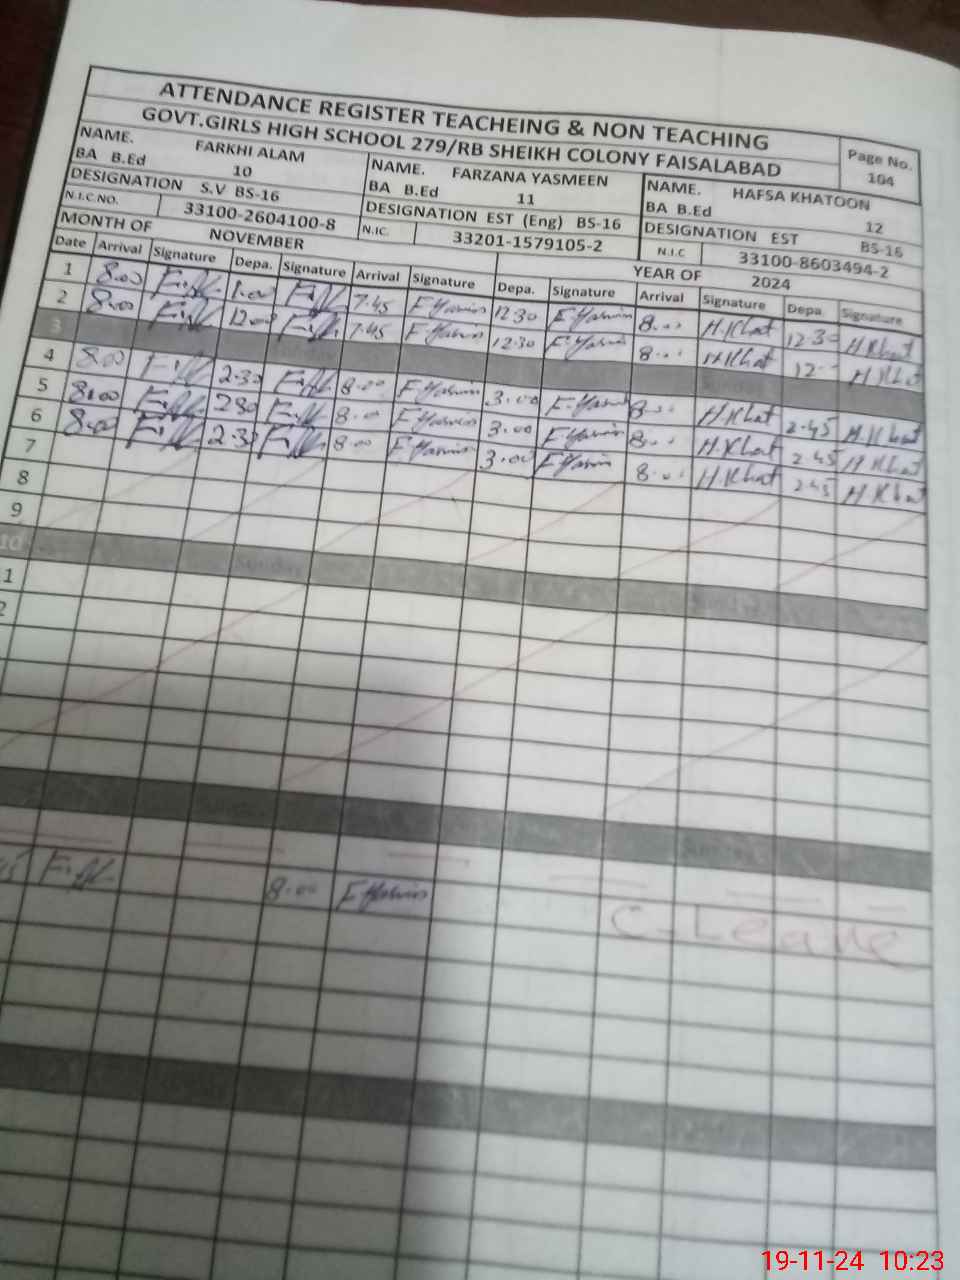 ATTENDANCE REGISTER TEACHEING & NON TEACHING
GOVT.GIRLS HIGH SCHOOL 279/RB SHEIKH COLONY FAISALABAD
Page No. 104
NAME. FARKHI ALAM
BA B.Ed 10
DESIGNATION S.V BS-16
N.I.C.NO. 33100-2604100-8
NAME. FARZANA YASMEEN
BA B.Ed 11
DESIGNATION EST (Eng) BS-16
N.IC. 33201-1579105-2
NAME. HAFSA KHATOON
BA B.Ed 12
DESIGNATION EST BS-16
N.I.C 33100-8603494-2
MONTH OF NOVEMBER YEAR OF 2024
Date Arrival Signature Depa. Signature Arrival Signature Depa. Signature Arrival Signature Depa. Signature
1 8.00 1.00 7.45 12.30 H.Khat 12.30 H.Khat
2 8.00 12.00 7.45 12.30 H.Khat H.Khat
3 Sunday Sunday
4 8.00 2.30 8.00 3.00 H.Khat 2.45 H.Khat
5 8.00 230 8.00 3.00 H.Khat 2.45 H.Khat
6 8.00 2.30 8.00 3.00 H.Khat 2.45 H.Khat
7
8
9
10 Sunday
1
2
8.00
C.Leave
19-11-24 10:23